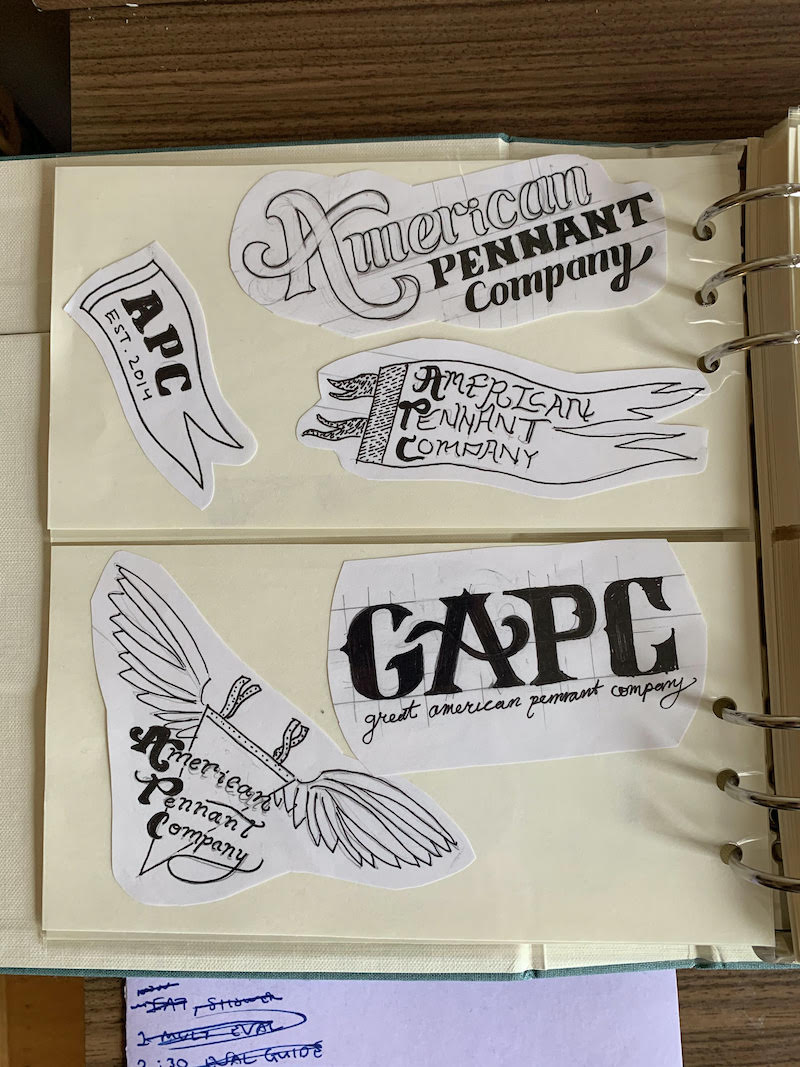 American
PENNANT
Company
APC
EST. 2014
AMERICAN
PENNANT
COMPANY
GAPC
great american pennant company
American
Pennant
Company
EAT, SHOWER
EVAL
2:30 GUIDE